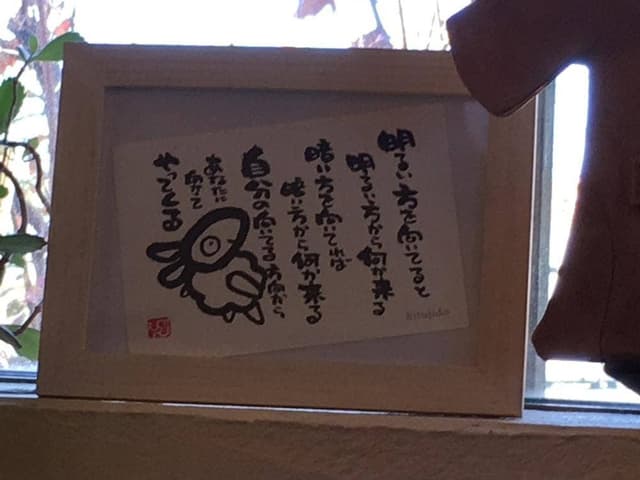 明るい方を向いてると
明るい方から何か来る
暗い方を向いてれば
暗い方から何か来る
自分の向いてる方向から
あなたに
向かって
やってくる